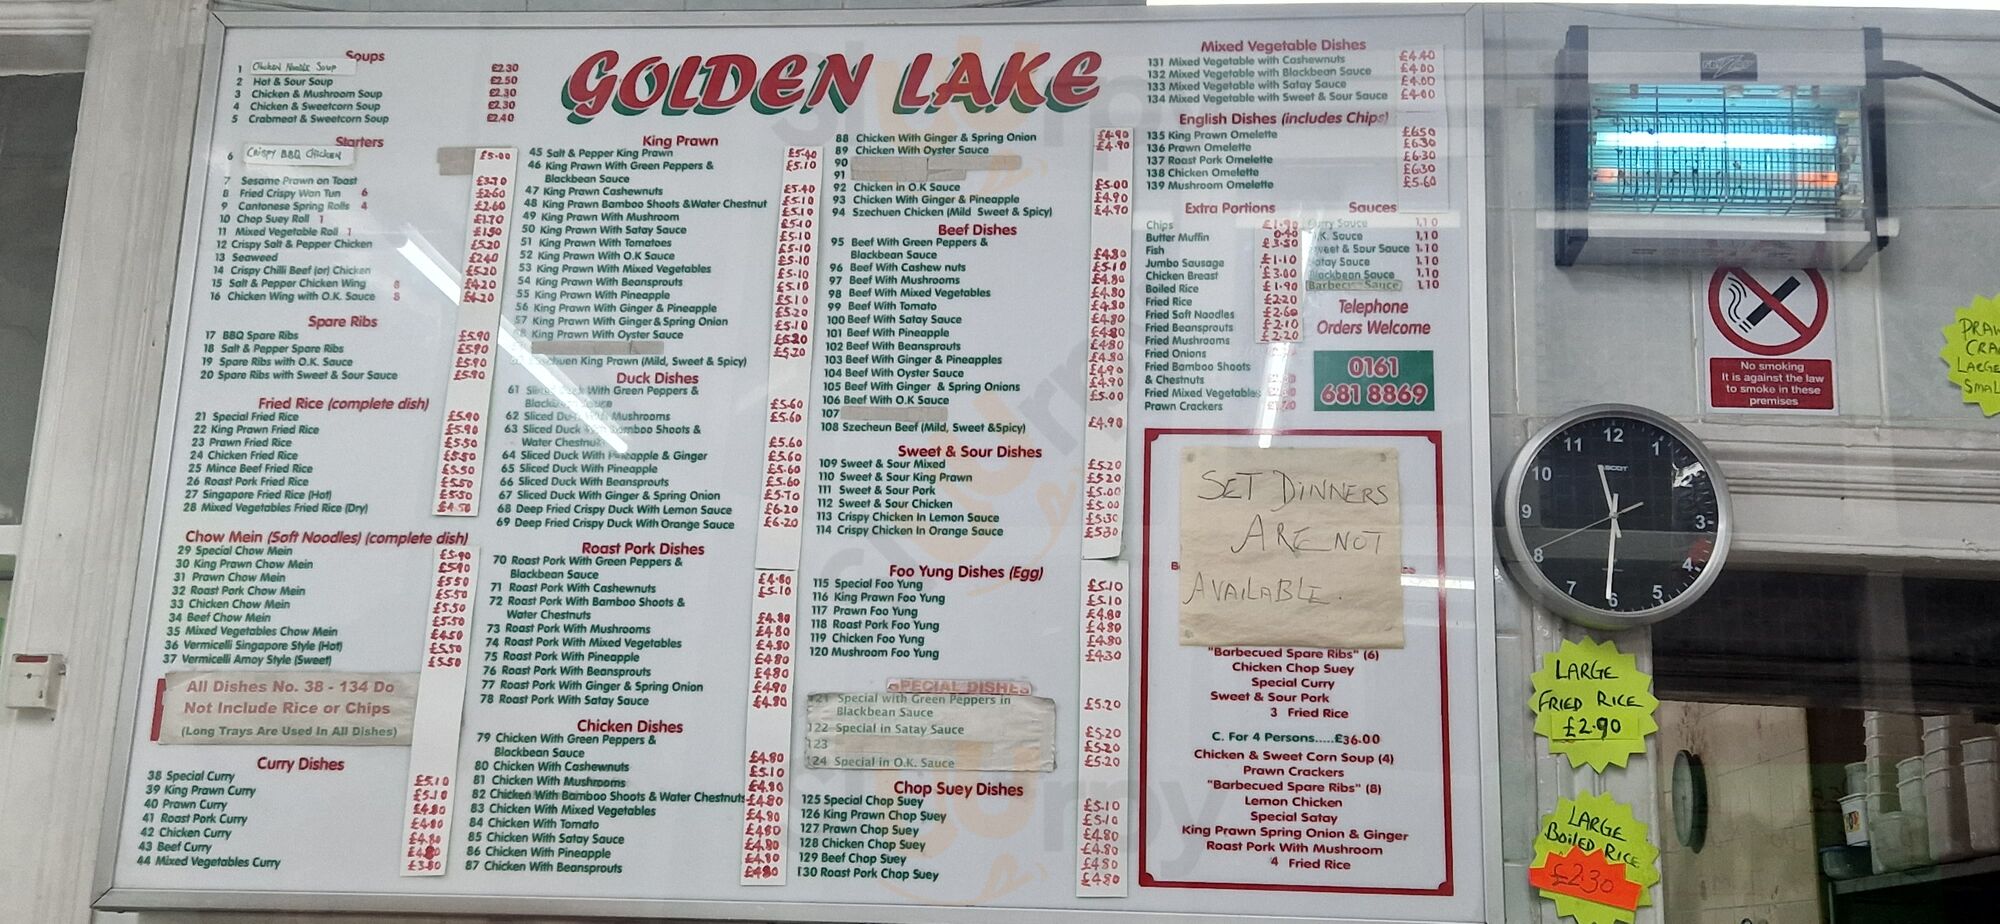 GOLDEN LAKE
Soups
1 Chicken Noodle Soup £2.30
2 Hot & Sour Soup £2.50
3 Chicken & Mushroom Soup £2.30
4 Chicken & Sweetcorn Soup £2.30
5 Crabmeat & Sweetcorn Soup £2.40
Starters
6 CRISPY BBQ CHICKEN £5.00
7 Sesame Prawn on Toast £3.70
8 Fried Crispy Wan Tun 6 £2.60
9 Cantonese Spring Rolls 4 £2.60
10 Chop Suey Roll 1 £1.70
11 Mixed Vegetable Roll 1 £1.50
12 Crispy Salt & Pepper Chicken £5.20
13 Seaweed £2.40
14 Crispy Chilli Beef (or) Chicken £5.20
15 Salt & Pepper Chicken Wing 8 £4.20
16 Chicken Wing with O.K. Sauce 8 £4.20
Spare Ribs
17 BBQ Spare Ribs £5.90
18 Salt & Pepper Spare Ribs £5.90
19 Spare Ribs with O.K. Sauce £5.90
20 Spare Ribs with Sweet & Sour Sauce £5.90
Fried Rice (complete dish)
21 Special Fried Rice £5.90
22 King Prawn Fried Rice £5.90
23 Prawn Fried Rice £5.50
24 Chicken Fried Rice £5.50
25 Mince Beef Fried Rice £5.50
26 Roast Pork Fried Rice £5.50
27 Singapore Fried Rice (Hot) £5.50
28 Mixed Vegetables Fried Rice (Dry) £4.50
Chow Mein (Soft Noodles) (complete dish)
29 Special Chow Mein £5.90
30 King Prawn Chow Mein £5.90
31 Prawn Chow Mein £5.50
32 Roast Pork Chow Mein £5.50
33 Chicken Chow Mein £5.50
34 Beef Chow Mein £5.50
35 Mixed Vegetables Chow Mein £4.50
36 Vermicelli Singapore Style (Hot) £5.50
37 Vermicelli Amoy Style (Sweet) £5.50
All Dishes No. 38 - 134 Do
Not Include Rice or Chips
(Long Trays Are Used In All Dishes)
Curry Dishes
38 Special Curry £5.10
39 King Prawn Curry £5.10
40 Prawn Curry £4.80
41 Roast Pork Curry £4.80
42 Chicken Curry £4.80
43 Beef Curry £4.80
44 Mixed Vegetables Curry £3.80
King Prawn
45 Salt & Pepper King Prawn £5.40
46 King Prawn With Green Peppers & £5.10
Blackbean Sauce
47 King Prawn Cashewnuts £5.40
48 King Prawn Bamboo Shoots &Water Chestnut £5.10
49 King Prawn With Mushroom £5.10
50 King Prawn With Satay Sauce £5.10
51 King Prawn With Tomatoes £5.10
52 King Prawn With O.K Sauce £5.10
53 King Prawn With Mixed Vegetables £5.10
54 King Prawn With Beansprouts £5.10
55 King Prawn With Pineapple £5.10
56 King Prawn With Ginger & Pineapple £5.20
57 King Prawn With Ginger & Spring Onion £5.10
King Prawn With Oyster Sauce £5.20
King Prawn (Mild, Sweet & Spicy) £5.20
Duck Dishes
61 Sliced Duck With Green Peppers &
Sauce £5.60
62 Sliced Duck With Mushrooms £5.60
63 Sliced Duck With Bamboo Shoots &
Water Chestnuts £5.60
64 Sliced Duck With Pineapple & Ginger £5.60
65 Sliced Duck With Pineapple £5.60
66 Sliced Duck With Beansprouts £5.60
67 Sliced Duck With Ginger & Spring Onion £5.70
68 Deep Fried Crispy Duck With Lemon Sauce £6.20
69 Deep Fried Crispy Duck With Orange Sauce £6.20
Roast Pork Dishes
70 Roast Pork With Green Peppers &
Blackbean Sauce £4.80
71 Roast Pork With Cashewnuts £5.10
72 Roast Pork With Bamboo Shoots &
Water Chestnuts £4.80
73 Roast Pork With Mushrooms £4.80
74 Roast Pork With Mixed Vegetables £4.80
75 Roast Pork With Pineapple £4.80
76 Roast Pork With Beansprouts £4.80
77 Roast Pork With Ginger & Spring Onion £4.90
78 Roast Pork With Satay Sauce £4.80
Chicken Dishes
79 Chicken With Green Peppers &
Blackbean Sauce £4.80
80 Chicken With Cashewnuts £5.10
81 Chicken With Mushrooms £4.80
82 Chicken With Bamboo Shoots & Water Chestnuts £4.80
83 Chicken With Mixed Vegetables £4.80
84 Chicken With Tomato £4.80
85 Chicken With Satay Sauce £4.80
86 Chicken With Pineapple £4.80
87 Chicken With Beansprouts £4.80
88 Chicken With Ginger & Spring Onion £4.90
89 Chicken With Oyster Sauce £4.90
90
91
92 Chicken in O.K Sauce £5.00
93 Chicken With Ginger & Pineapple £4.90
94 Szechuen Chicken (Mild Sweet & Spicy) £4.90
Beef Dishes
95 Beef With Green Peppers &
Blackbean Sauce £4.80
96 Beef With Cashew nuts £5.10
97 Beef With Mushrooms £4.80
98 Beef With Mixed Vegetables £4.80
99 Beef With Tomato £4.80
100 Beef With Satay Sauce £4.80
101 Beef With Pineapple £4.80
102 Beef With Beansprouts £4.80
103 Beef With Ginger & Pineapples £4.80
104 Beef With Oyster Sauce £4.90
105 Beef With Ginger & Spring Onions £4.90
106 Beef With O.K Sauce £5.00
107
108 Szecheun Beef (Mild, Sweet &Spicy) £4.90
Sweet & Sour Dishes
109 Sweet & Sour Mixed £5.20
110 Sweet & Sour King Prawn £5.20
111 Sweet & Sour Pork £5.00
112 Sweet & Sour Chicken £5.00
113 Crispy Chicken In Lemon Sauce £5.30
114 Crispy Chicken In Orange Sauce £5.30
Foo Yung Dishes (Egg)
115 Special Foo Yung £5.10
116 King Prawn Foo Yung £5.10
117 Prawn Foo Yung £4.80
118 Roast Pork Foo Yung £4.80
119 Chicken Foo Yung £4.80
120 Mushroom Foo Yung £4.30
SPECIAL DISHES
121 Special with Green Peppers in £5.20
Blackbean Sauce
122 Special in Satay Sauce £5.20
123 £5.20
124 Special in O.K. Sauce £5.20
Chop Suey Dishes
125 Special Chop Suey £5.10
126 King Prawn Chop Suey £5.10
127 Prawn Chop Suey £4.80
128 Chicken Chop Suey £4.80
129 Beef Chop Suey £4.80
130 Roast Pork Chop Suey £4.80
Mixed Vegetable Dishes
131 Mixed Vegetable with Cashewnuts £4.40
132 Mixed Vegetable with Blackbean Sauce £4.00
133 Mixed Vegetable with Satay Sauce £4.00
134 Mixed Vegetable with Sweet & Sour Sauce £4.00
English Dishes (includes Chips)
135 King Prawn Omelette £6.50
136 Prawn Omelette £6.30
137 Roast Pork Omelette £6.30
138 Chicken Omelette £6.30
139 Mushroom Omelette £5.60
Extra Portions
Chips £1.90
Butter Muffin 0.40
Fish £3.50
Jumbo Sausage £1.10
Chicken Breast £3.00
Boiled Rice £1.90
Fried Rice £2.20
Fried Soft Noodles £2.60
Fried Beansprouts £2.10
Fried Mushrooms £2.20
Fried Onions
Fried Bamboo Shoots
& Chestnuts
Fried Mixed Vegetables
Prawn Crackers
Sauces
Curry Sauce 1.10
O.K. Sauce 1.10
Sweet & Sour Sauce 1.10
Satay Sauce 1.10
Blackbean Sauce 1.10
Barbecue Sauce 1.10
Telephone
Orders Welcome
0161
681 8869
SET DINNERS
ARE NOT
AVAILABLE.
"Barbecued Spare Ribs" (6)
Chicken Chop Suey
Special Curry
Sweet & Sour Pork
3 Fried Rice
C. For 4 Persons.....£36.00
Chicken & Sweet Corn Soup (4)
Prawn Crackers
"Barbecued Spare Ribs" (8)
Lemon Chicken
Special Satay
King Prawn Spring Onion & Ginger
Roast Pork With Mushroom
4 Fried Rice
No smoking
It is against the law
to smoke in these
premises
12
1
3
4
5
6
7
8
9
10
11
LARGE
FRIED RICE
£2.90
LARGE
BOILED RICE
£2.30
LARGE